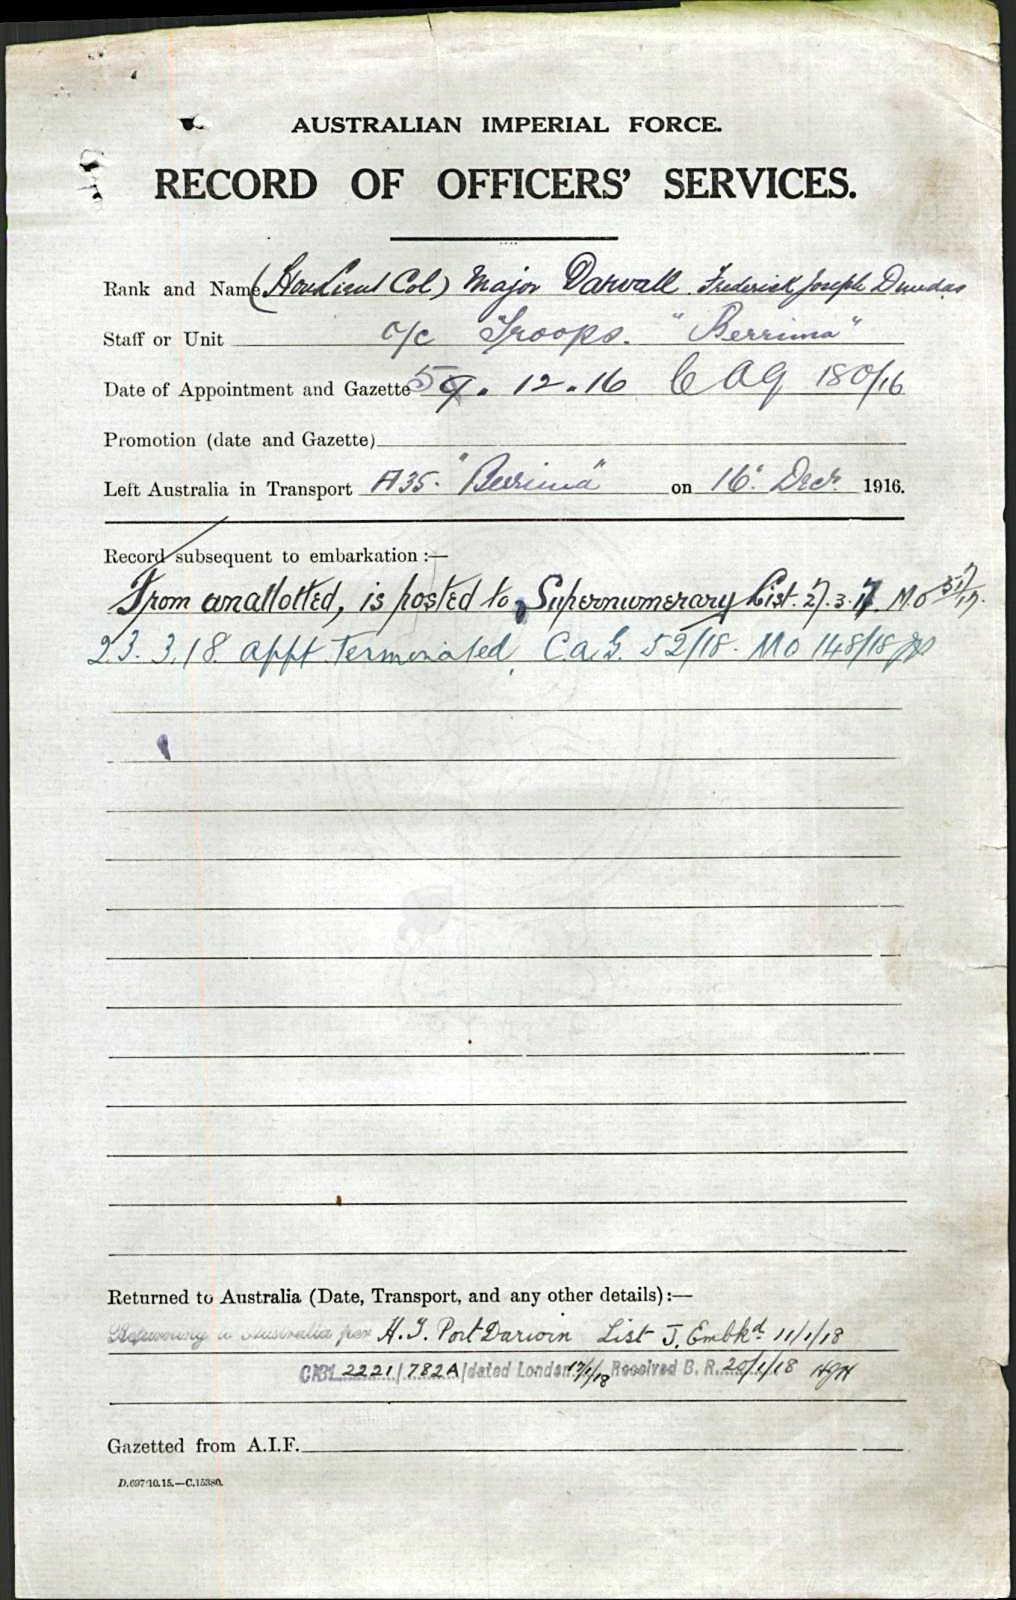 AUSTRALIAN IMPERIAL FORCE.
RECORD OF OFFICERS' SERVICES.
Rank and Name (Hon Lieut Col) Major Darvall Frederick Joseph Dundas
Staff or Unit O/C Troops. "Berrima"
Date of Appointment and Gazette 9. 12. 16 C A G 180/16
Promotion (date and Gazette)
Left Australia in Transport A35. "Berrima" on 16 Decr. 1916.
Record subsequent to embarkation :—
From unallotted, is posted to Supernumerary List. 27.3.17. M.O
23.3.18. appt terminated C.a.G. 52/18. MO 148/18
Returned to Australia (Date, Transport, and any other details):—
Returning to Australia per H.T. Port Darwin List J. Embkd. 11/1/18
CABL 2221/782A/dated London 17/1/18 Received B. R. 20/1/18
Gazetted from A.I.F.
D.697/10.15.—C.15380.